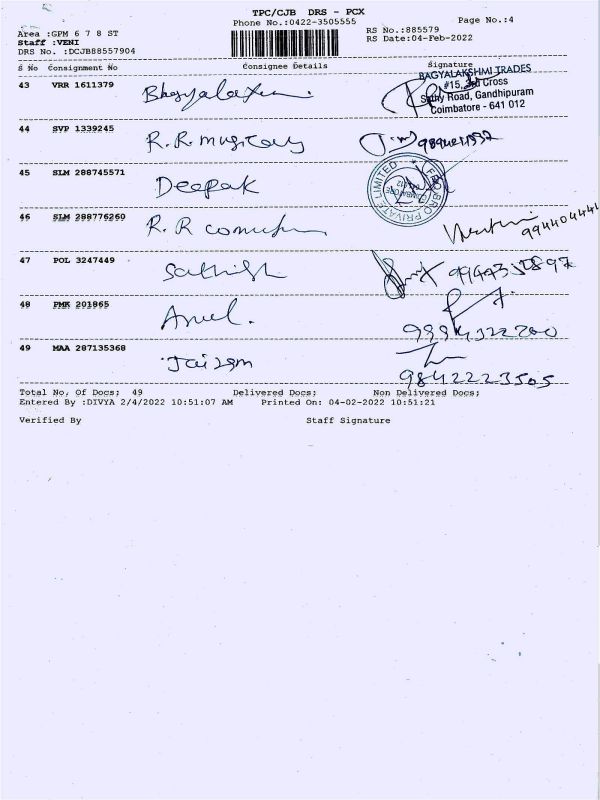 TPC/CJB DRS - PCX
Phone No.:0422-3505555
Page No.:4
Area :GPM 6 7 8 ST
RS No.:885579
Staff :VENI
RS Date:04-Feb-2022
DRS No. :DCJB88557904
S No Consignment No Consignee Details Signature
43 VRR 1611379 BAGYALAKSHMI TRADES
#15, 3rd Cross
Sathy Road, Gandhipuram
Coimbatore - 641 012
44 SVP 1339245 R.R.
45 SLM 288745571 Deepak PRO PRIVATE LIMITED
46 SLM 288776260 R.R
47 POL 3247449 Sathish
48 PMK 201865 Arul.
49 MAA 287135368 Jairam
9842223505
Total No, Of Docs; 49 Delivered Docs: Non Delivered Docs;
Entered By :DIVYA 2/4/2022 10:51:07 AM Printed On: 04-02-2022 10:51:21
Verified By Staff Signature